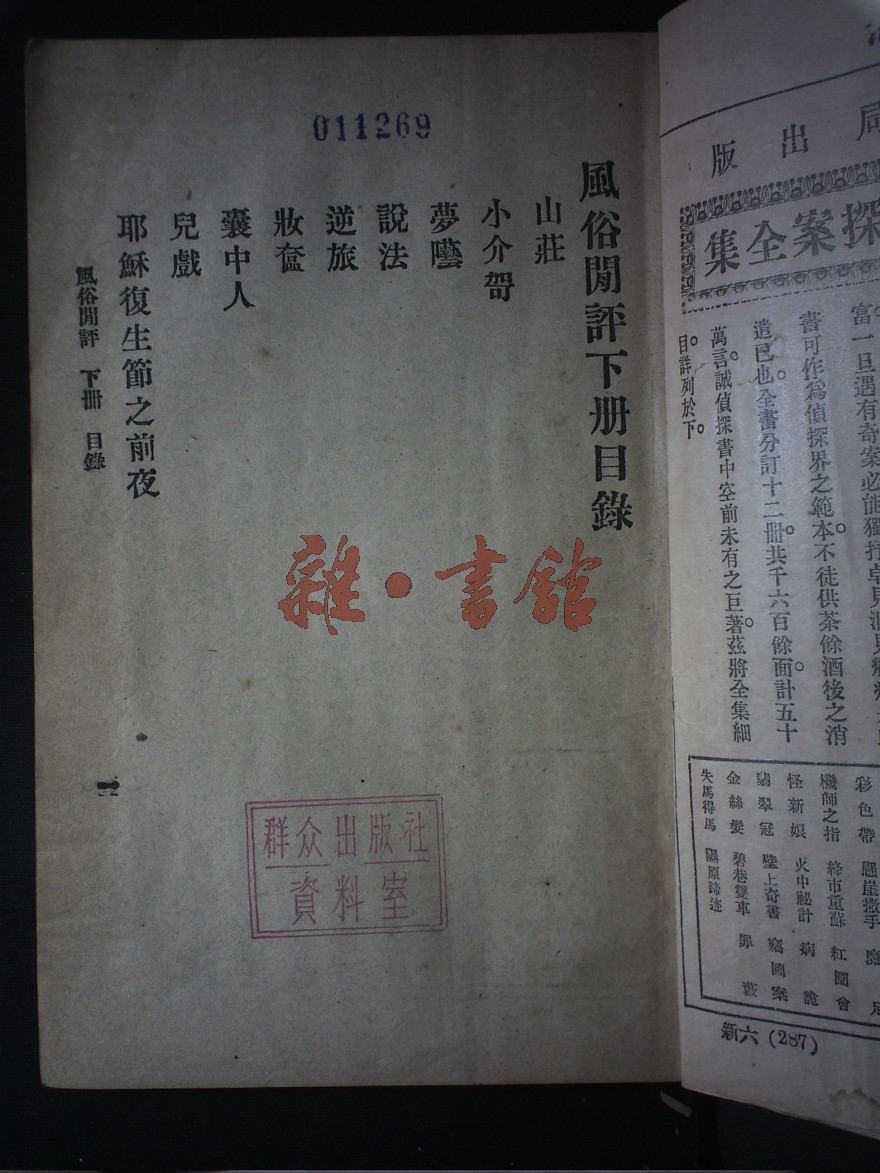 011269
風俗閒評下册目錄
山莊
小介哿
夢囈
說法
逆旅
妝奩
囊中人
兒戲
耶穌復生節之前夜
風俗閒評 下册 目錄
一
雜·書館
群众出版社
資料室
局出版
探案全集
富。一旦遇有奇案必能獨抒卓見洞見
書可作爲偵探界之範本。不徒供茶餘酒後之消
遣已也。全書分訂十二册。共千六百餘面。計五十
萬言。誠偵探書中空前未有之巨著。茲將全集細
目。詳列於下。
彩色帶 懸崖撒手
機師之指 絳市重蘇 紅圜會
怪新娘 火中祕計 病詭
翡翠冠 壁上奇書 窃圖案
金絲髮 碧巷雙車 罪藪
失馬得馬 隰原蹄迹
新六(287)